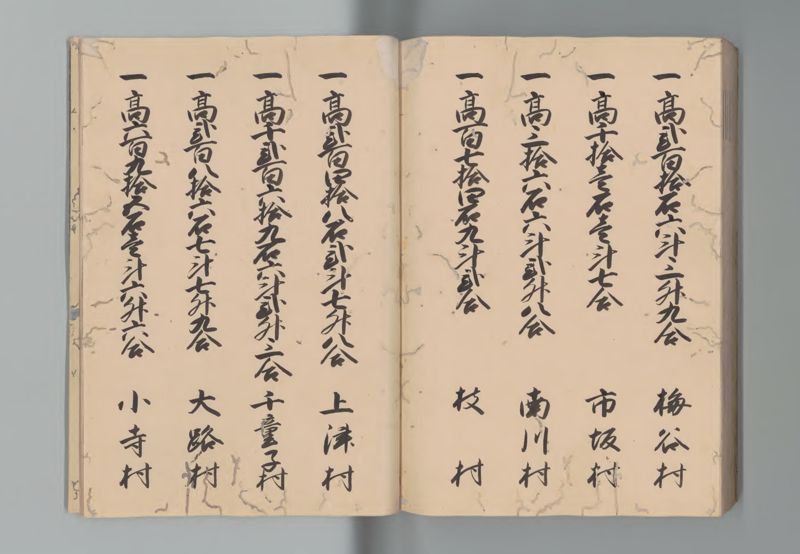 一高弐百拾石六斗三升九合 梅谷村
一高千拾壱石壱斗七合 市坂村
一高三拾六石六斗弐升八合 南川村
一高百七拾四石九斗弐合 枝村
一高弐百四拾八石弐斗七升八合 上津村
一高千弐百六拾九石六斗弐升三合 千童子村
一高弐百八拾六石七斗七升九合 大路村
一高六百九拾五石壱斗六升六合 小寺村